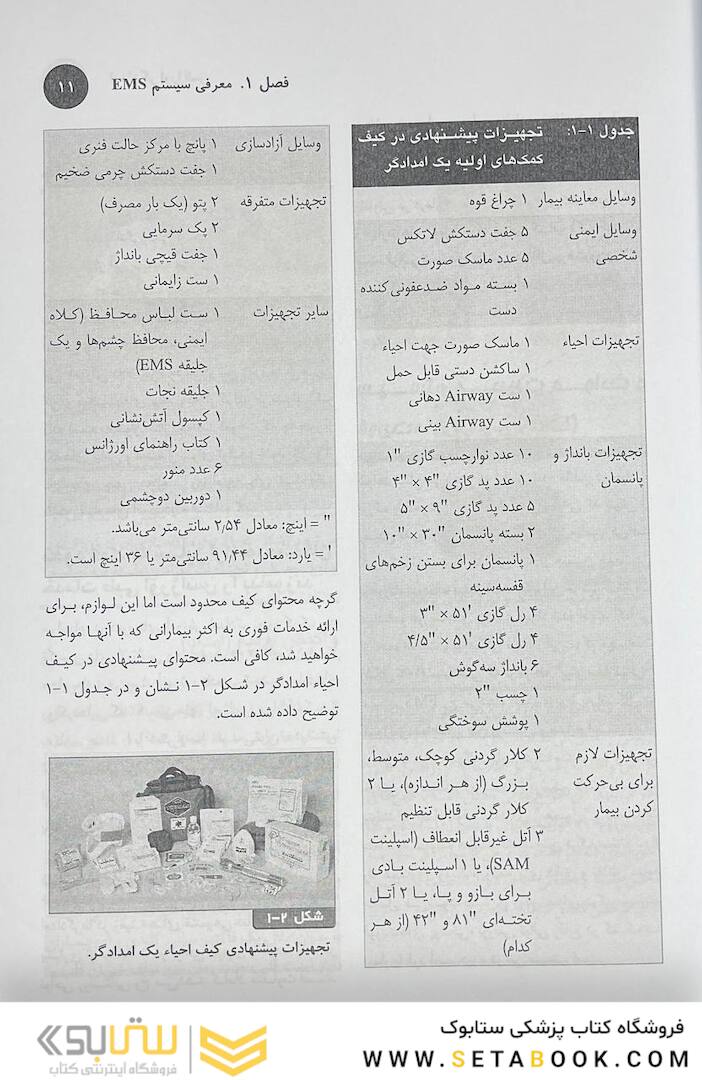 فصل ۱. معرفی سیستم EMS
۱۱
جدول ۱-۱: تجهیزات پیشنهادی در کیف
کمک‌های اولیه یک امدادگر
وسایل معاینه بیمار ۱ چراغ قوه
وسایل ایمنی ۵ جفت دستکش لاتکس
شخصی ۵ عدد ماسک صورت
۱ بسته مواد ضدعفونی‌کننده
دست
تجهیزات احیاء ۱ ماسک صورت جهت احیاء
۱ ساکشن دستی قابل حمل
۱ ست Airway دهانی
۱ ست Airway بینی
تجهیزات بانداژ و ۱۰ عدد نوارچسب گازی "۱
پانسمان ۱۰ عدد پد گازی "۴ × "۴
۵ عدد پد گازی "۹ × "۵
۲ بسته پانسمان "۳۰ × "۱۰
۱ پانسمان برای بستن زخم‌های
قفسه‌سینه
۴ رل گازی '۵۱ × "۳
۴ رل گازی '۵۱ × "۴/۵
۶ بانداژ سه‌گوش
۱ چسب "۲
۱ پوشش سوختگی
تجهیزات لازم ۲ کلار گردنی کوچک، متوسط،
برای بی‌حرکت بزرگ (از هر اندازه)، یا ۲
کردن بیمار کلار گردنی قابل تنظیم
۳ آتل غیرقابل انعطاف (اسپلینت
SAM)، یا ۱ اسپلینت بادی
برای بازو و پا، یا ۲ آتل
تخته‌ای "۸۱ و "۴۲ (از هر
کدام)
وسایل آزادسازی ۱ پانچ با مرکز حالت فنری
۱ جفت دستکش چرمی ضخیم
تجهیزات متفرقه ۲ پتو (یک بار مصرف)
۲ پک سرمایی
۱ جفت قیچی بانداژ
۱ ست زایمانی
سایر تجهیزات ۱ ست لباس محافظ (کلاه
ایمنی، محافظ چشم‌ها و یک
جلیقه EMS)
۱ جلیقه نجات
۱ کپسول آتش‌نشانی
۱ کتاب راهنمای اورژانس
۶ عدد منور
۱ دوربین دوچشمی
" = اینچ: معادل ۲٫۵۴ سانتی‌متر می‌باشد.
' = یارد: معادل ۹۱٫۴۴ سانتی‌متر یا ۳۶ اینچ است.
گرچه محتوای کیف محدود است اما این لوازم، برای
ارائه خدمات فوری به اکثر بیمارانی که با آنها مواجه
خواهید شد، کافی است. محتوای پیشنهادی در کیف
احیاء امدادگر در شکل ۲-۱ نشان و در جدول ۱-۱
توضیح داده شده است.
شکل ۲-۱
تجهیزات پیشنهادی کیف احیاء یک امدادگر.
فروشگاه کتاب پزشکی ستابوک
WWW.SETABOOK.COM
ستابوک
فروشگاه اینترنتی کتاب